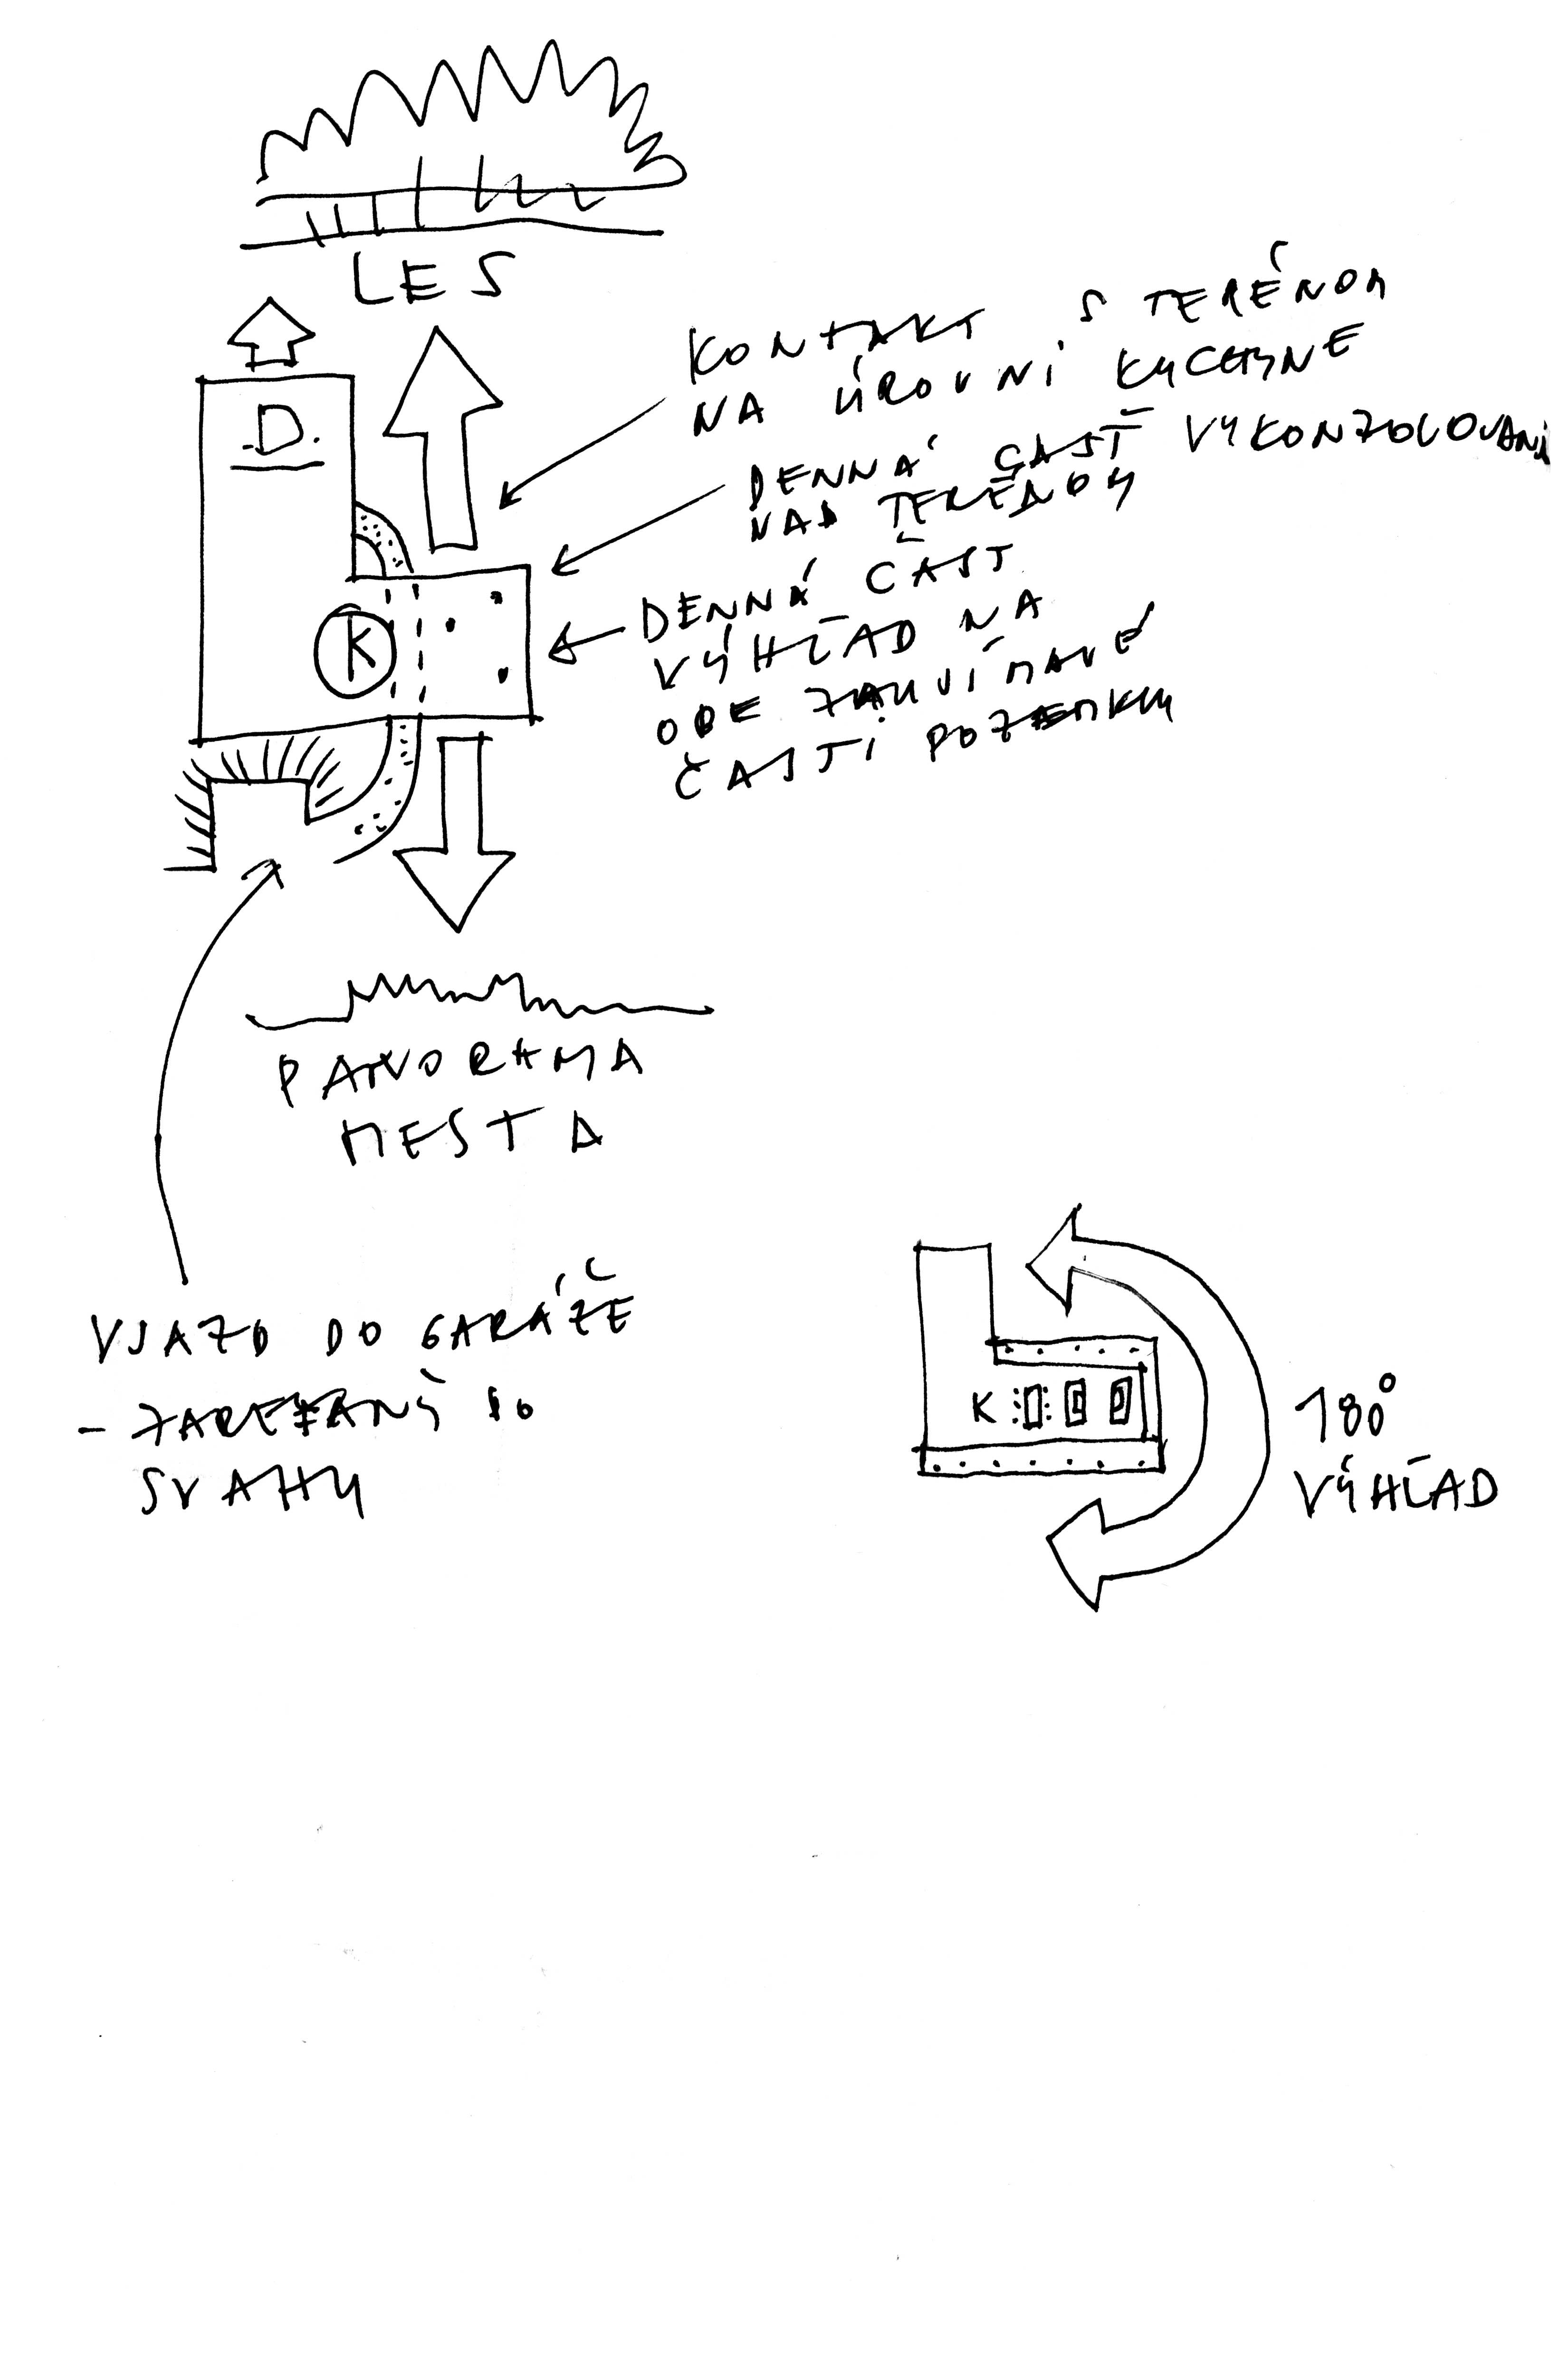 LES
D.
KONTAKT S TERÉNOM
NA ÚROVNI KUCHYNE
DENNÁ ČASŤ VYKONZOLOVANÁ
NAD TERÉNOM
K
DENNÁ ČASŤ
VÝHĽAD NA
OBE ZAUJÍMAVÉ
ČASTI POZEMKU
PANORAMA
MESTA
VJAZD DO GARÁŽE
- ZAREZANÝ DO
SVAHU
K
180°
VÝHĽAD